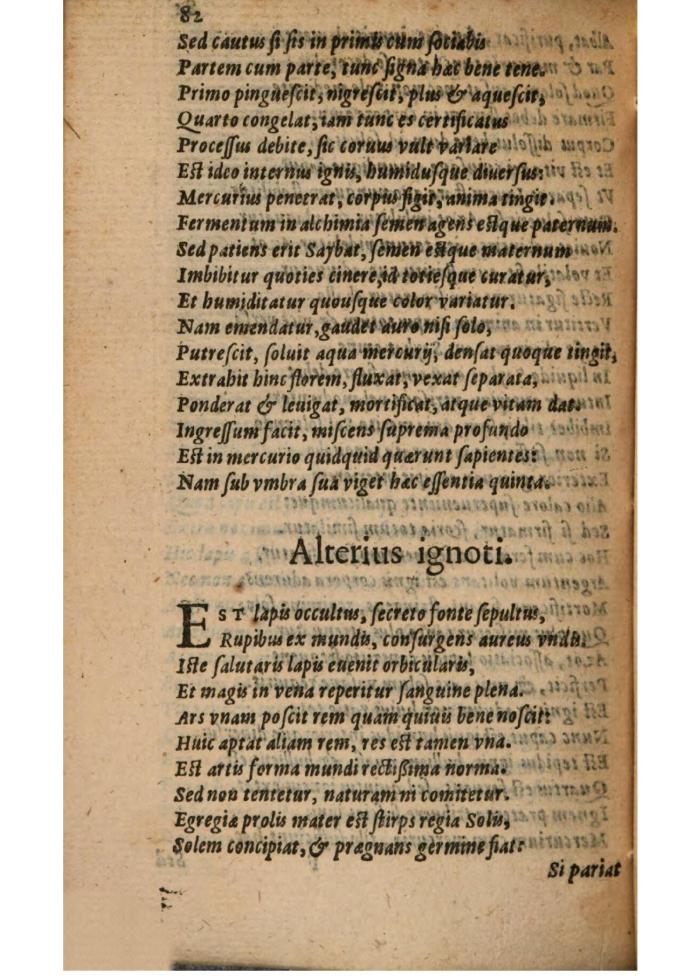 82
Sed cautus si sis in primis cum sociabis
Partem cum parte, tunc signa hæc bene tene.
Primo pinguescit, nigrescit, plus & aquescit,
Quarto congelat, iam tunc es certificatus
Processus debite, sic coruus vult variare
Est ideo internus ignis, humidusque diuersus:
Mercurius penetrat, corpus figit, anima tingit.
Fermentum in alchimia semen agens estque paternum.
Sed patiens erit Saybat, semen estque maternum
Imbibitur quoties cinere, id totiesque curatur,
Et humiditatur quousque color variatur.
Nam emendatur, gaudet auro nisi solo,
Putrescit, soluit aqua mercurij, densat quoque tingit,
Extrahit hinc florem, fluxat, vexat separata,
Ponderat & leuigat, mortificat, atque vitam dat.
Ingressum facit, miscens suprema profundo
Est in mercurio quidquid quærunt sapientes:
Nam sub vmbra sua viget hæc essentia quinta.
Alterius ignoti.
EST lapis occultus, secreto fonte sepultus,
Rupibus ex mundis, consurgens aureus vndis.
Iste salutaris lapis euenit orbicularis,
Et magis in vena reperitur sanguine plena.
Ars vnam poscit rem quam quiuis bene noscit:
Huic aptat aliam rem, res est tamen vna.
Est artis forma mundi rectißima norma.
Sed non tentetur, naturam ni comitetur.
Egregiæ prolis mater est stirps regia Solis,
Solem concipiat, & prægnans germine fiat:
Si pariat